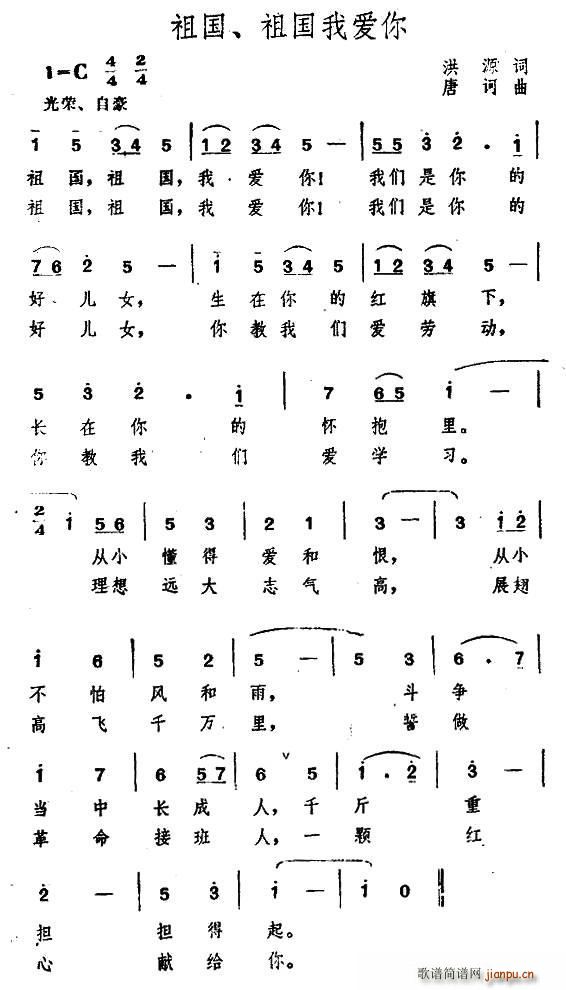 祖国、祖国我爱你
1=C 4/4 2/4
洪 源 词
唐 诃 曲
光荣、自豪
1 5 3 4 5 | 1 2 3 4 5 — | 5 5 3 2 . 1 |
祖 国, 祖 国, 我 爱 你! 我们 是 你 的
祖 国, 祖 国, 我 爱 你! 我们 是 你 的
7 6 2 5 — | 1 5 3 4 5 | 1 2 3 4 5 — |
好 儿 女, 生 在 你 的 红 旗 下,
好 儿 女, 你 教 我 们 爱 劳 动,
5 3 2 . 1 | 7 6 5 1 — |
长 在 你 的 怀 抱 里。
你 教 我 们 爱 学 习。
2/4 1 5 6 | 5 3 | 2 1 | 3 — | 3 1 2 |
从小 懂 得 爱 和 恨, 从小
理想 远 大 志 气 高, 展翅
1 6 | 5 2 | 5 — | 5 3 | 6 . 7 |
不 怕 风 和 雨, 斗 争
高 飞 千 万 里, 誓 做
1 7 | 6 5 7 | 6 ∨ 5 | 1 . 2 | 3 — |
当 中 长 成 人, 千 斤 重
革 命 接 班 人, 一 颗 红
2 — | 5 3 | 1 — | 1 0 ‖
担 担 得 起。
心 献 给 你。
歌谱简谱网
jianpu.cn